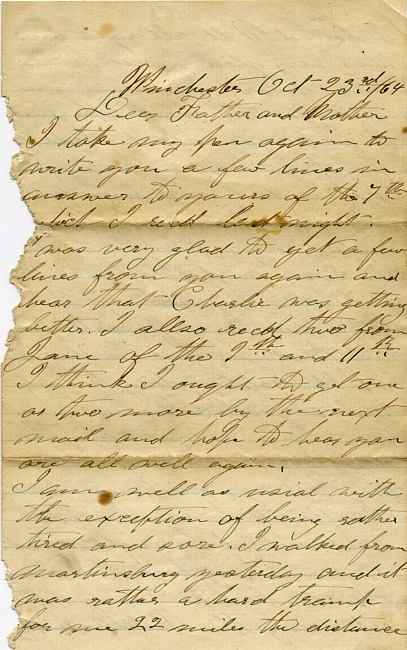 Winchester Oct 23rd/64
Dear Father and Mother
I take my pen again to
write you a few lines in
answer to yours of the 7th
which I recd last night.
I was very glad to get a few
lines from you again and
hear that Charlie was getting
better. I allso recd two from
Jane of the 9th and 11th
I think I ought to get one
or two more by the next
mail and hope to hear you
are all well again.
I am well as usial with
the exception of being rather
tired and sore. I walked from
Martinsburg yesterday and it
was rather a hard tramp
for me 22 miles the distance